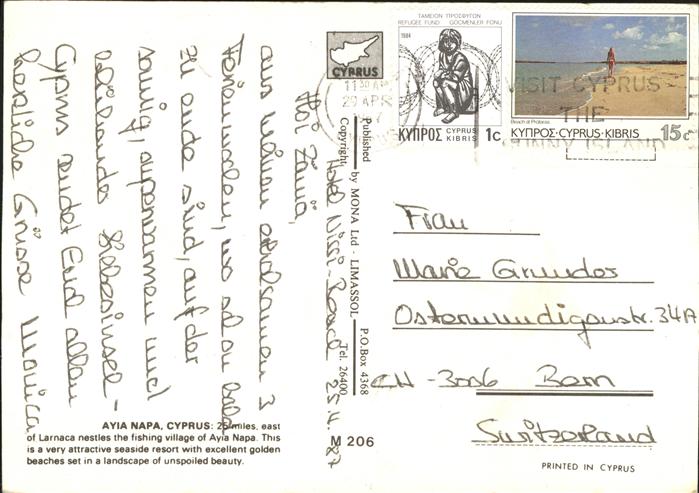 Hotel Nissi-Beach 25.4.87
Hoi Zämä,
aus meinen erholsamen 3
Ferienwochen, wo schon bald
zu ende sind, auf der
sonnig, superwarmen und
blühender Liebesinsel-
Cypern sendet Euch allen
herzliche Grüsse Monica
AYIA NAPA, CYPRUS: 25 miles, east
of Larnaca nestles the fishing village of Ayia Napa. This
is a very attractive seaside resort with excellent golden
beaches set in a landscape of unspoiled beauty.
Published by MONA Ltd - LIMASSOL P.O.Box 4368
Copyright Tel. 26400
M 206
CYPRUS
11 30 AM
29 APR
ΤΑΜΕΙΟΝ ΠΡΟΣΦΥΓΩΝ
REFUGEE FUND GÖÇMENLER FONU
1984
ΚΥΠΡΟΣ CYPRUS KIBRIS 1c
Beach at Protaras
ΚΥΠΡΟΣ·CYPRUS·KIBRIS 15c
VISIT CYPRUS
THE
SUNNY ISLAND
Frau
Marie Grunder
Ostermundigenstr. 34A
CH - 3006 Bern
Switzerland
PRINTED IN CYPRUS